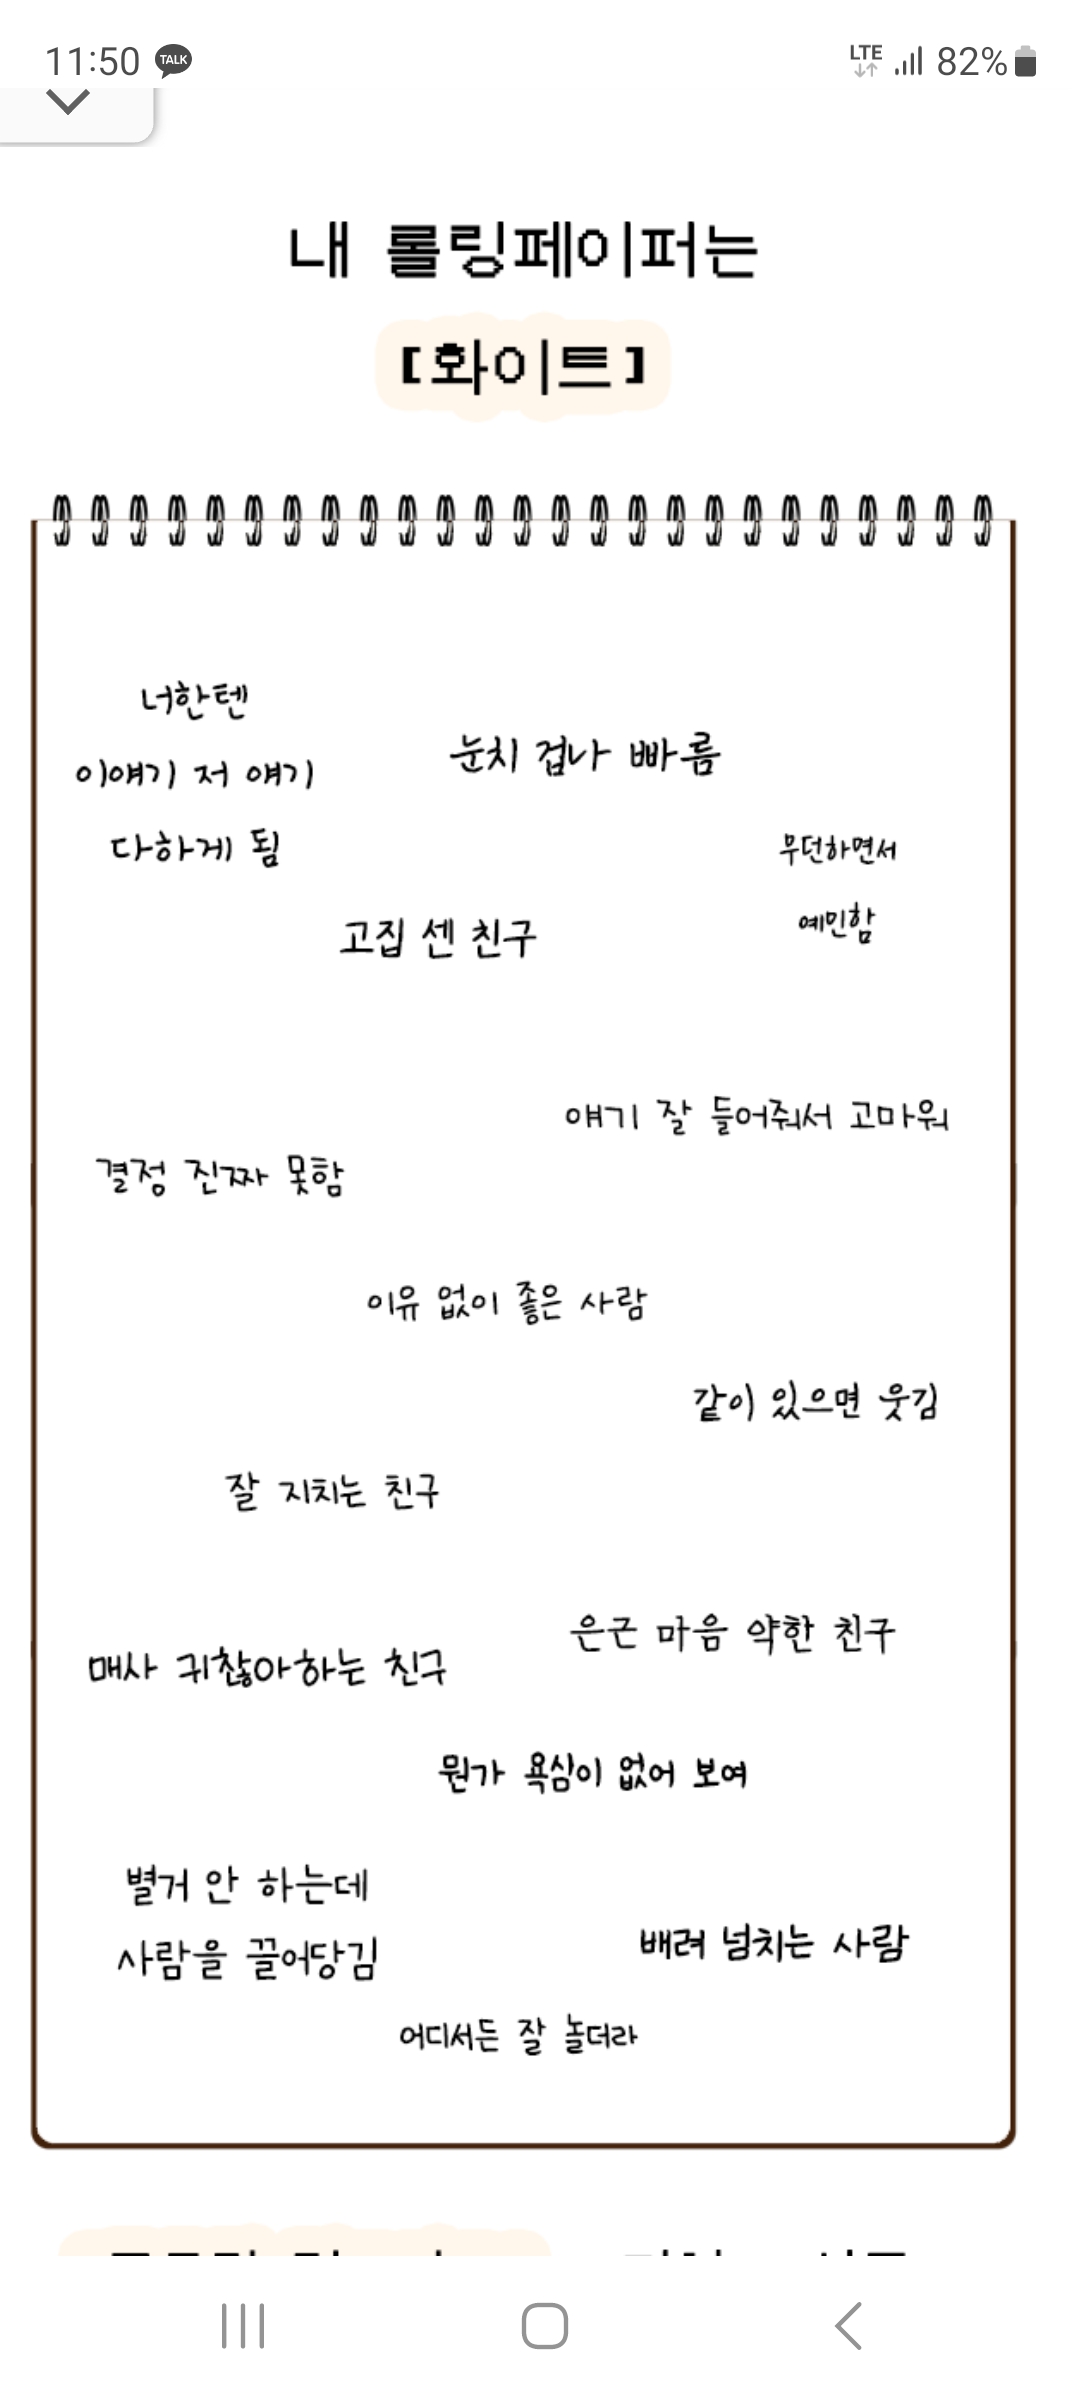 11:50 TALK LTE 82%
내 롤링페이퍼는
[화이트]
너한텐
이얘기 저 얘기
다하게 됨
눈치 겁나 빠름
무던하면서
예민함
고집 센 친구
얘기 잘 들어줘서 고마워
결정 진짜 못함
이유 없이 좋은 사람
같이 있으면 웃김
잘 지치는 친구
은근 마음 약한 친구
매사 귀찮아하는 친구
뭔가 욕심이 없어 보여
별거 안 하는데
사람을 끌어당김
배려 넘치는 사람
어디서든 잘 놀더라